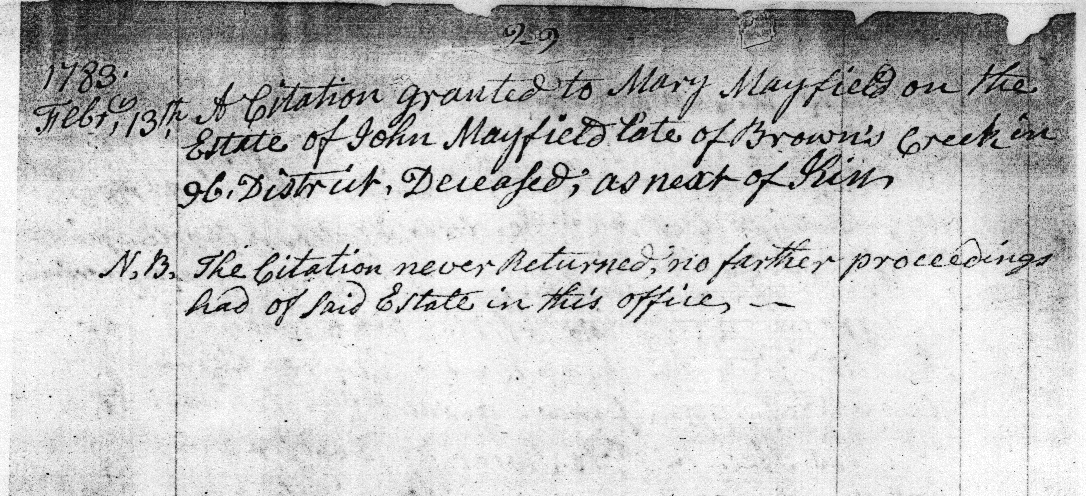 22
1783.
Febry 13th, A Citation granted to Mary Mayfield on the
Estate of John Mayfield late of Brown's Creek in
96. District, Deceased, as next of Kin,
N.B. The Citation never Returned, no farther proceedings
had of said Estate in this office, —